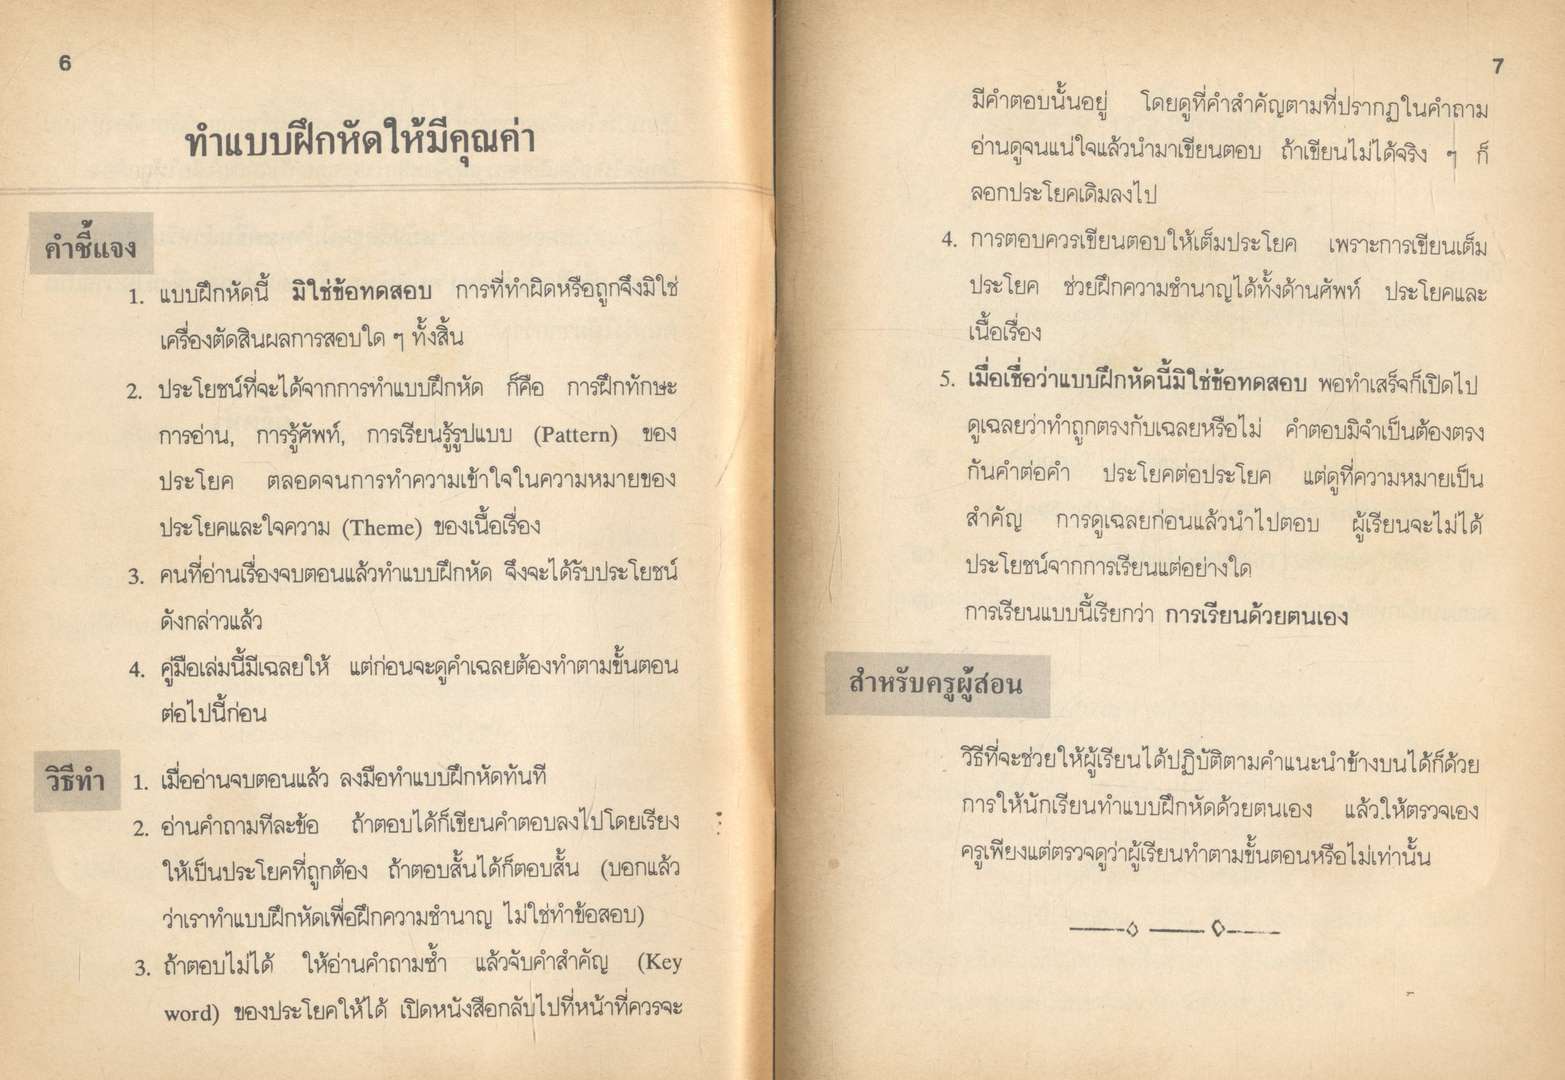 6
ทำแบบฝึกหัดให้มีคุณค่า
คำชี้แจง
1. แบบฝึกหัดนี้ มิใช่ข้อทดสอบ การที่ทำผิดหรือถูกจึงมิใช่
เครื่องตัดสินผลการสอบใด ๆ ทั้งสิ้น
2. ประโยชน์ที่จะได้จากการทำแบบฝึกหัด ก็คือ การฝึกทักษะ
การอ่าน, การรู้ศัพท์, การเรียนรู้รูปแบบ (Pattern) ของ
ประโยค ตลอดจนการทำความเข้าใจในความหมายของ
ประโยคและใจความ (Theme) ของเนื้อเรื่อง
3. คนที่อ่านเรื่องจบตอนแล้วทำแบบฝึกหัด จึงจะได้รับประโยชน์
ดังกล่าวแล้ว
4. คู่มือเล่มนี้มีเฉลยให้ แต่ก่อนจะดูคำเฉลยต้องทำตามขั้นตอน
ต่อไปนี้ก่อน
วิธีทำ 1. เมื่ออ่านจบตอนแล้ว ลงมือทำแบบฝึกหัดทันที
2. อ่านคำถามทีละข้อ ถ้าตอบได้ก็เขียนคำตอบลงไปโดยเรียง
ให้เป็นประโยคที่ถูกต้อง ถ้าตอบสั้นได้ก็ตอบสั้น (บอกแล้ว
ว่าเราทำแบบฝึกหัดเพื่อฝึกความชำนาญ ไม่ใช่ทำข้อสอบ)
3. ถ้าตอบไม่ได้ ให้อ่านคำถามซ้ำ แล้วจับคำสำคัญ (Key
word) ของประโยคให้ได้ เปิดหนังสือกลับไปที่หน้าที่ควรจะ
7
มีคำตอบนั้นอยู่ โดยดูที่คำสำคัญตามที่ปรากฏในคำถาม
อ่านดูจนแน่ใจแล้วนำมาเขียนตอบ ถ้าเขียนไม่ได้จริง ๆ ก็
ลอกประโยคเดิมลงไป
4. การตอบควรเขียนตอบให้เต็มประโยค เพราะการเขียนเต็ม
ประโยค ช่วยฝึกความชำนาญได้ทั้งด้านศัพท์ ประโยคและ
เนื้อเรื่อง
5. เมื่อเชื่อว่าแบบฝึกหัดนี้มิใช่ข้อทดสอบ พอทำเสร็จก็เปิดไป
ดูเฉลยว่าทำถูกตรงกับเฉลยหรือไม่ คำตอบมิจำเป็นต้องตรง
กันคำต่อคำ ประโยคต่อประโยค แต่ดูที่ความหมายเป็น
สำคัญ การดูเฉลยก่อนแล้วนำไปตอบ ผู้เรียนจะไม่ได้
ประโยชน์จากการเรียนแต่อย่างใด
การเรียนแบบนี้เรียกว่า การเรียนด้วยตนเอง
สำหรับครูผู้สอน
วิธีที่จะช่วยให้ผู้เรียนได้ปฏิบัติตามคำแนะนำข้างบนได้ก็ด้วย
การให้นักเรียนทำแบบฝึกหัดด้วยตนเอง แล้วให้ตรวจเอง
ครูเพียงแต่ตรวจดูว่าผู้เรียนทำตามขั้นตอนหรือไม่เท่านั้น